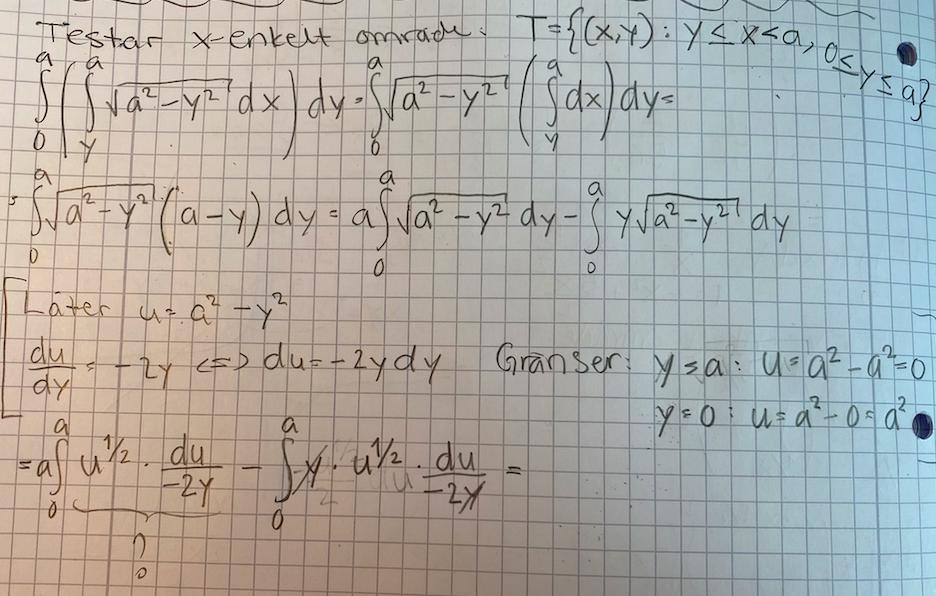 Testar x-enkelt område: T={(x,y): y≤x<a, 0≤y≤a}
∫₀ᵃ(∫ᵧᵃ √(a²-y²) dx) dy = ∫₀ᵃ √(a²-y²) (∫ᵧᵃ dx) dy =
= ∫₀ᵃ √(a²-y²) (a-y) dy = a∫₀ᵃ √(a²-y²) dy - ∫₀ᵃ y√(a²-y²) dy
Låter u = a² - y²
du/dy = -2y <=> du = -2y dy Gränser: y=a: u=a²-a²=0
y=0: u=a²-0=a²
= a∫₀ᵃ u^1/2 · du/-2y - ∫₀ᵃ y · u^1/2 · du/-2y =
?